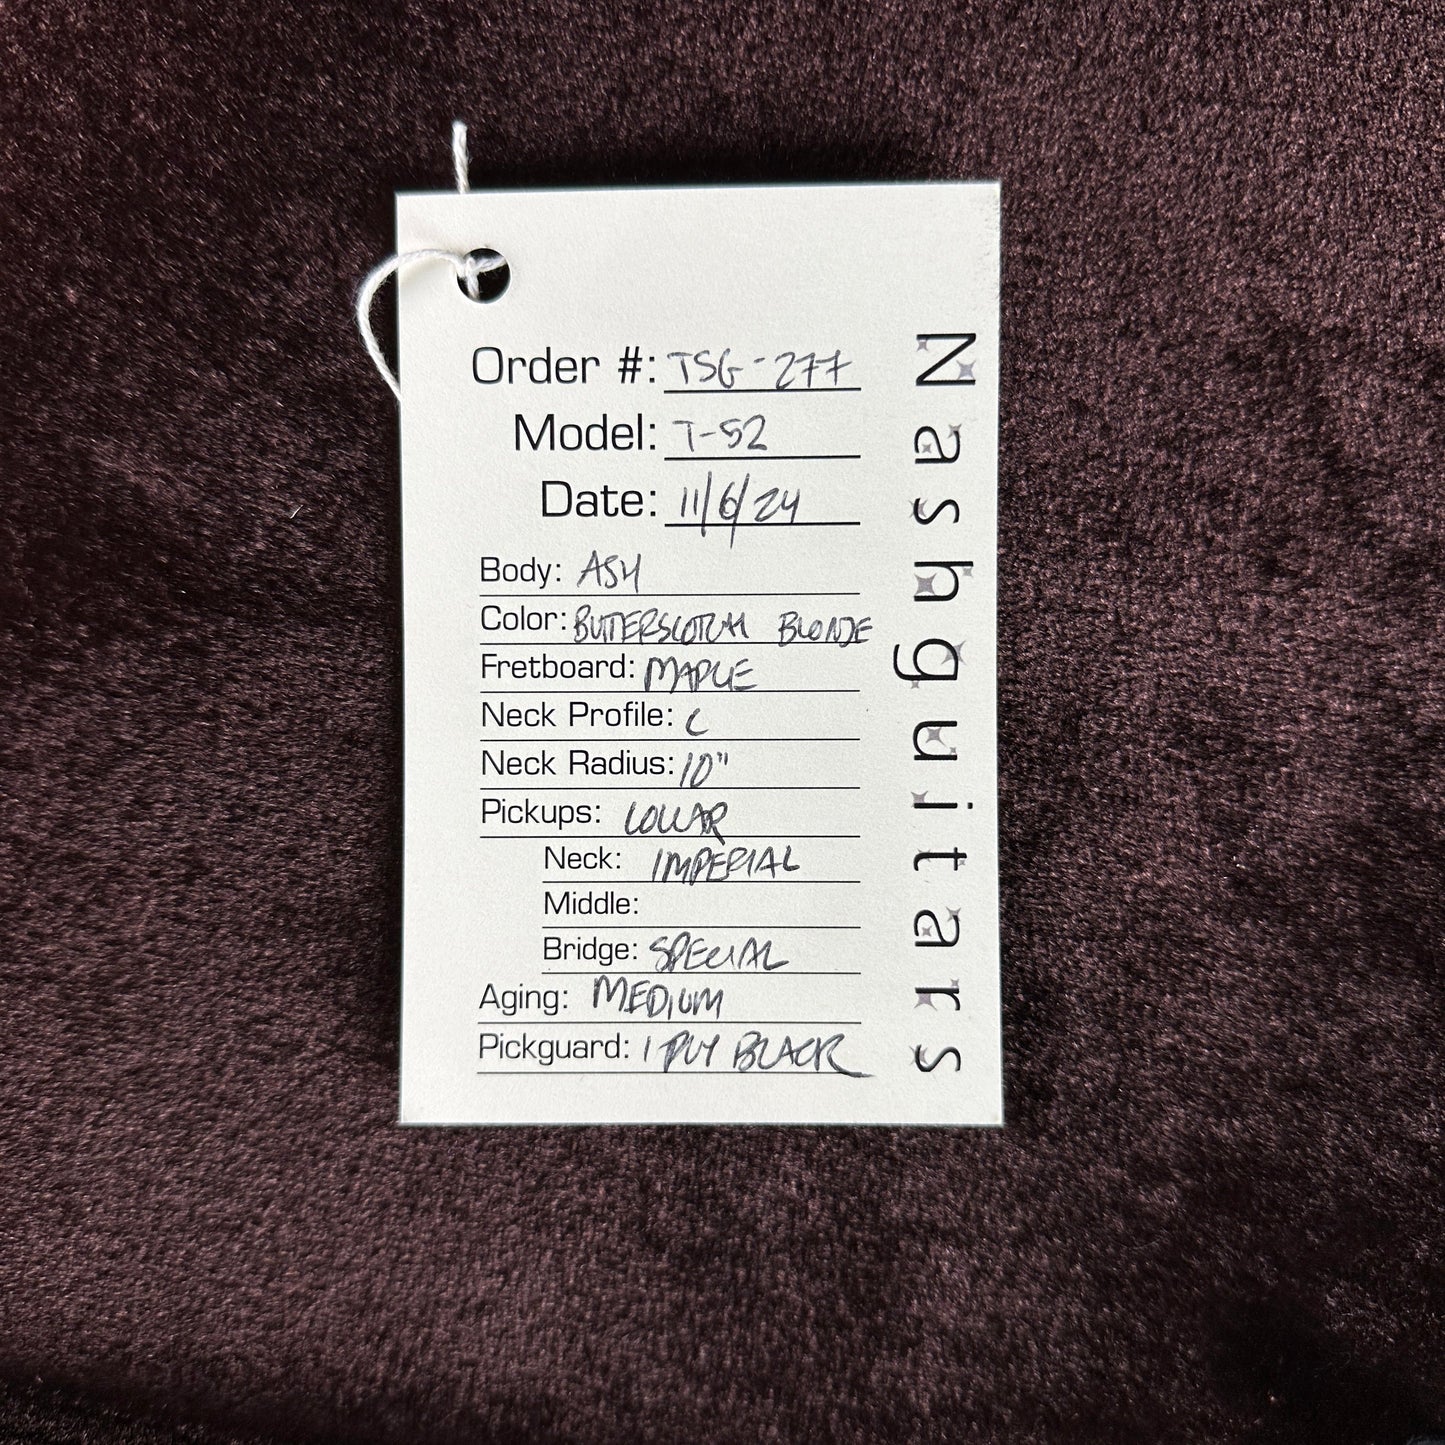 Order #: TSG-277
Model: T-52
Date: 11/6/24
Body: ASH
Color: BUTTERSCOTCH BLONDE
Fretboard: MAPLE
Neck Profile: C
Neck Radius: 10"
Pickups: LOLLAR
Neck: IMPERIAL
Middle:
Bridge: SPECIAL
Aging: MEDIUM
Pickguard: 1 PLY BLACK
Nashguitars